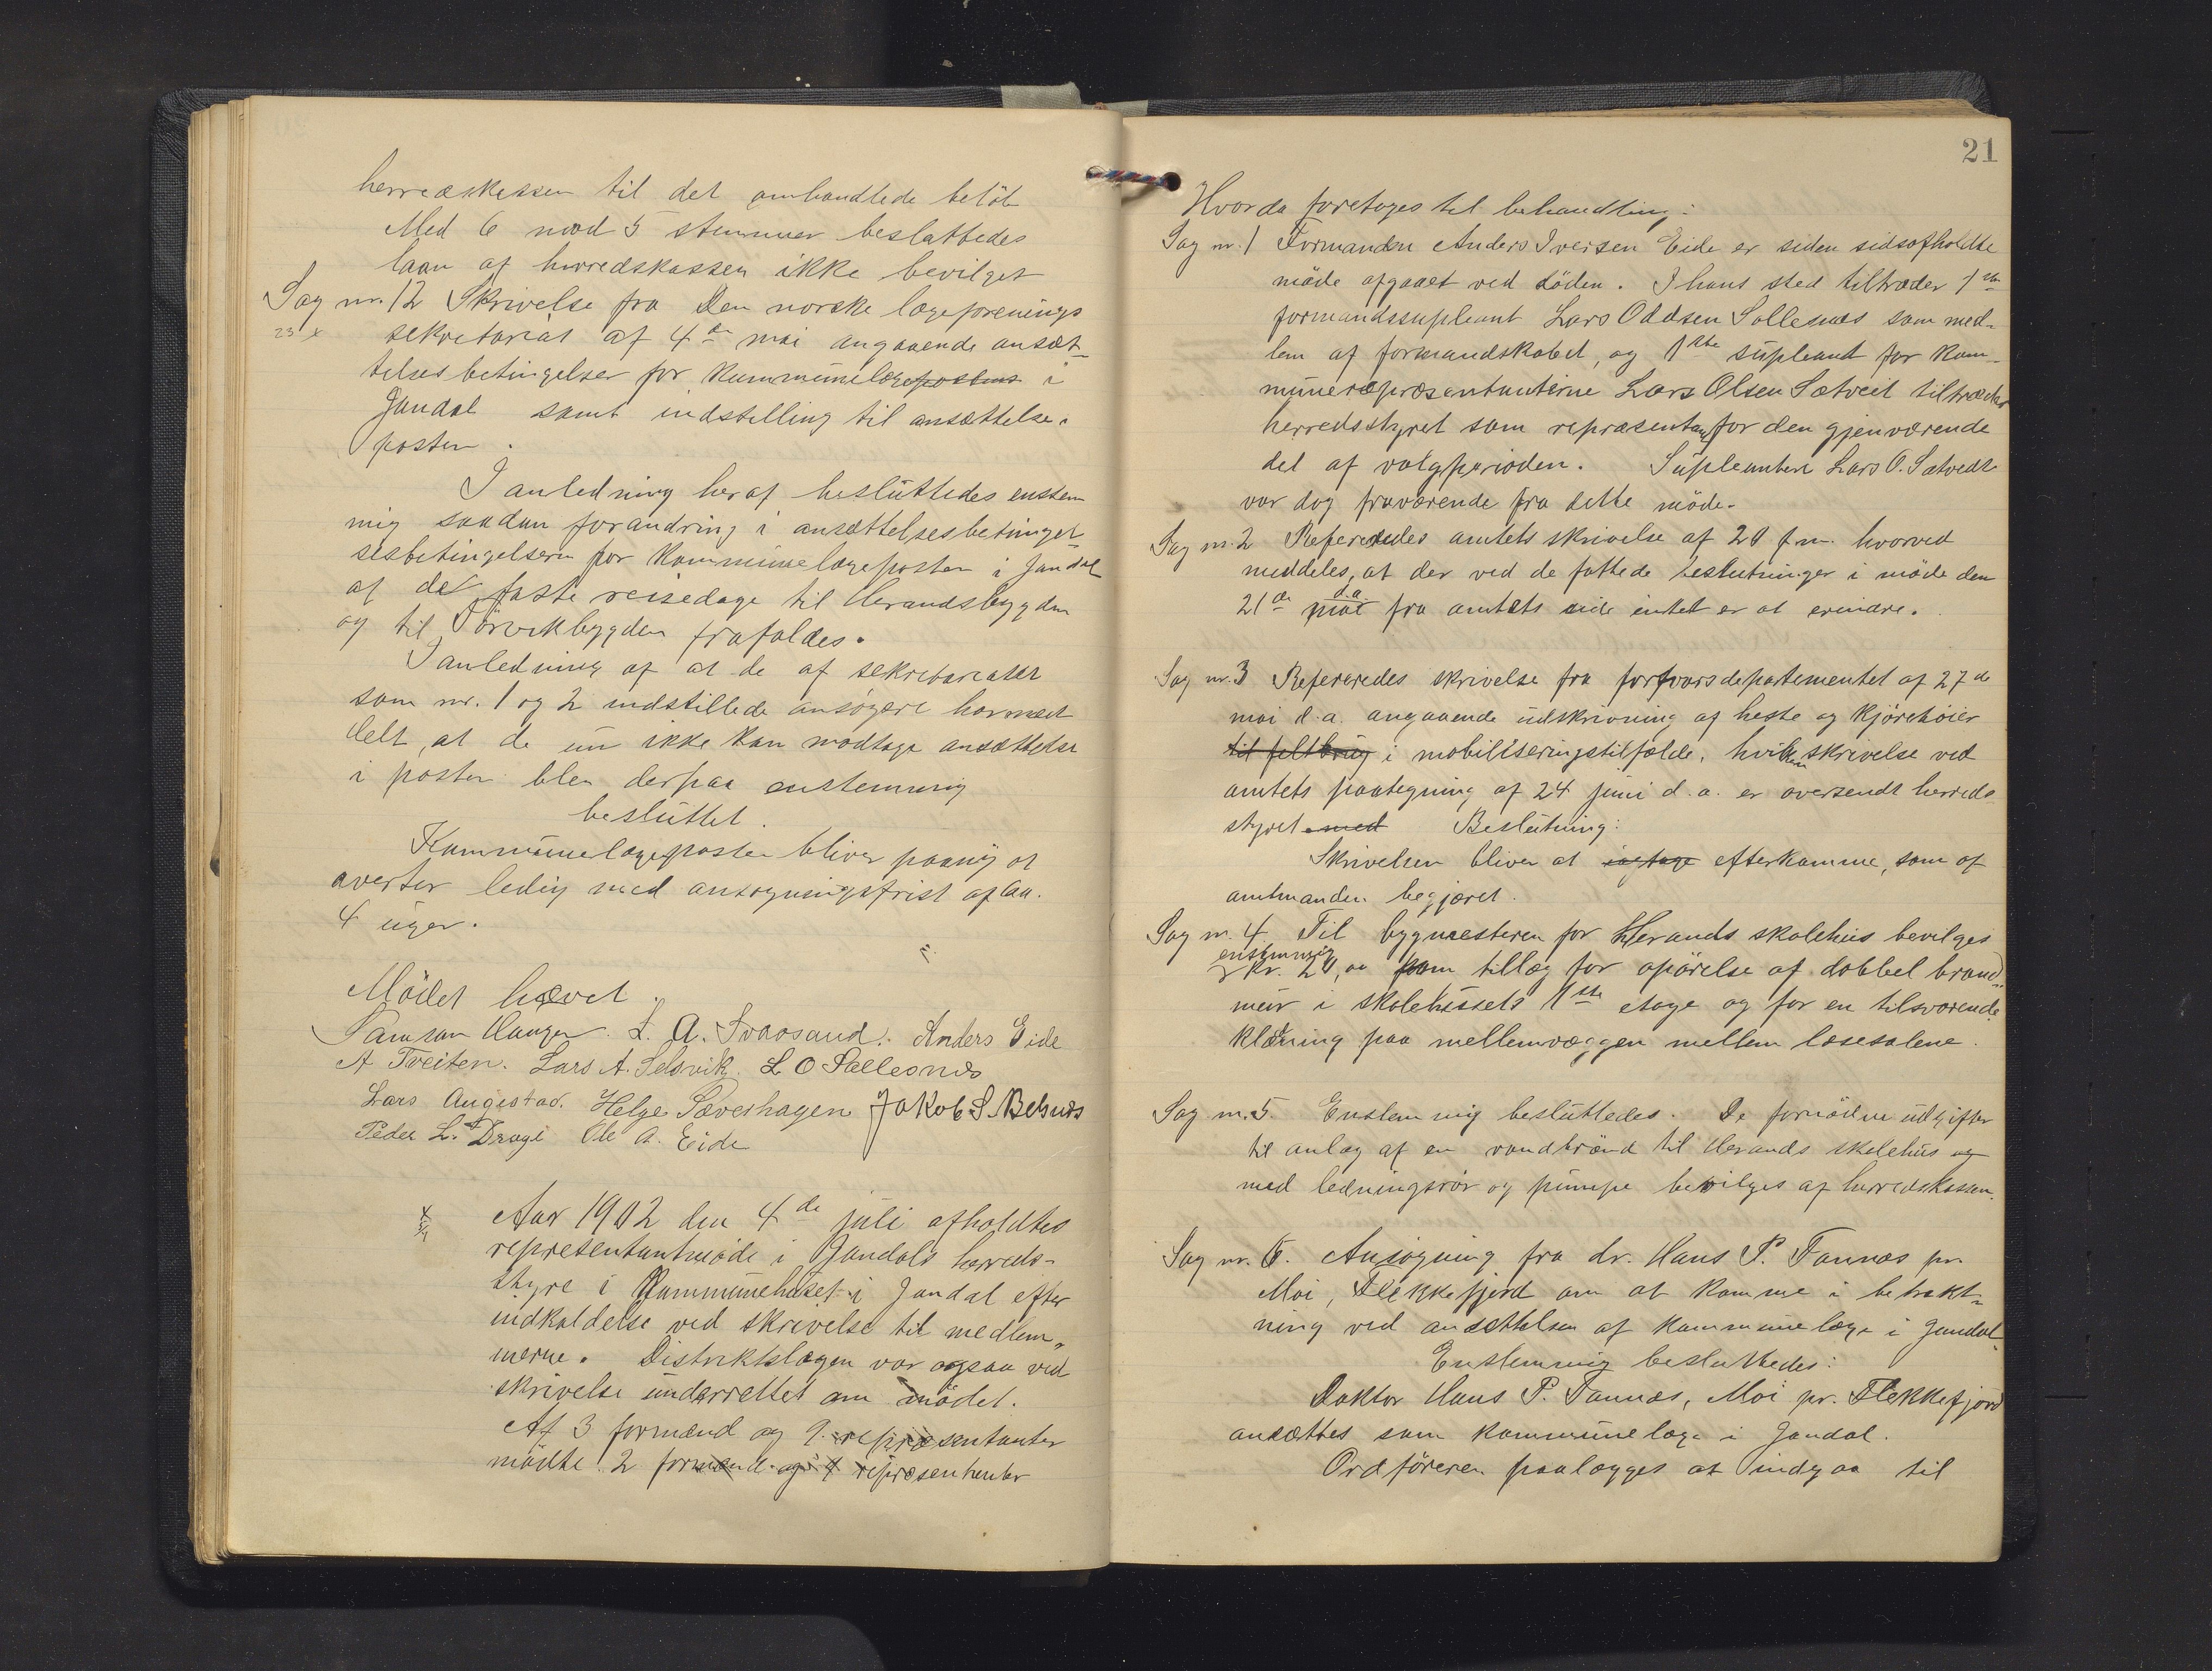 herredskassen til det omhandlede beløb
Med 6 mod 5 stemmer besluttedes
laan af herredskassen ikke bevilget
Sag nr. 12 Skrivelse fra Den norske lægeforenings
sekretariat af 4de mai angaaende ansæt-
telsesbetingelser for kommunelægeposten i
Jondal samt indstilling til ansættelse i
posten.
I anledning heraf besluttedes enstem
mig saadan forandring i ansættelsesbetingel-
sesbetingelsern for kommunelægeposten i Jondal
at de faste reisedage til Herandsbygden
og til Törvikbygden frafaldes.
I anledning af at de af sekretariatet
som nr. 1 og 2 indstillede ansøgere har med
delt, at de nu ikke kan modtage ansættelse
i posten blev derpaa enstemmig
besluttet.
Kommunelægeposten bliver paany at
averter ledig med ansøgningsfrist af ca.
4 uger.
Mödet hævet.
Samson Haugen. L. A. Svaasand. Anders Eide
A Treiten. Lars A. Selsvik. L O Sollesnæs
Lars Augestad. Helge Sæverhagen Jakob S. Belsnæs
Peder L. Drage Ole A. Eide
Aar 1902 den 4de juli afholdtes
representantmøde i Jondals herreds-
styre i Kommunehuset i Jondal efter
indkaldelse ved skrivelse til medlem-
merne. Distriktslægen var ogsaa ved
skrivelse underrettet om mödet.
Af 3 formænd og 9 repræsentanter
mödte 2 formænd og 4 repræsententer
21
Hvorda foretages til behandling:
Sag nr. 1 Formanden Anders Iversen Eide er siden sidsafholdte
möde afgaaet ved döden. I hans sted tiltræder 1ste
formandssupleant Lars Oddsen Sollesnæs som med-
lem af formandskabet, og 1ste supleant for kom-
munerepræsentanterne Lars Olsen Sætveit tiltræder
herredsstyret som repræsentant for den gjenværende
del af valgperioden. Supleanten Lars O. Sætvedt
var dog fraværende fra dette möde.
Sag nr. 2 Refereredes amtets skrivelse af 20 f.m. hvorved
meddeles, at der ved de fattede beslutninger i möde den
21de mai d.a. fra amtets side intet er at erindre.
Sag nr. 3 Refereredes skrivelse fra forsvarsdepartementet af 27de
mai d.a. angaaende udskrivning af heste og kjöretöier
til feltbrug i mobiliseringstilfælde, hvilken skrivelse ved
amtets paategning af 24 juni d.a. er oversendt herreds
styret med Beslutning:
Skrivelsen bliver at iagtage efterkomme, som af
amtmanden begjæret.
Sag nr. 4 Til bygmesteren for Herands skolehus bevilges
enstemmig
kr. 20,00 som tillæg for opörelse af dobbel brand-
mur i skolehusets 1ste etage og for en tilsvarende
klædning paa mellemvæggen mellem læsesalene.
Sag nr. 5. Enstemmig besluttedes. De fornödne udgifter
til anlæg af en vandbrönd til Herands skolehus og
med ledningsrör og pumpe bevilges af herredskassen.
Sag nr. 6. Ansögning fra dr. Hans P. Tannæs pr.
Moi, Flekkefjord om at komme i betrakt-
ning ved ansættelsen af kommunelæge i Jondal.
Enstemmig besluttedes:
Doktor Hans P. Tannæs, Moi pr. Flekkefjord
ansættes som kommunelæge i Jondal.
Ordföreren paalægges at indgaa til